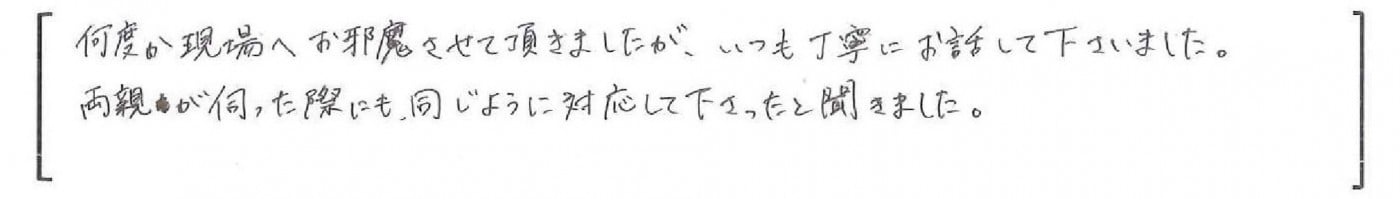 何度か現場へお邪魔させて頂きましたが、いつも丁寧にお話して下さいました。
両親が伺った際にも、同じように対応して下さったと聞きました。